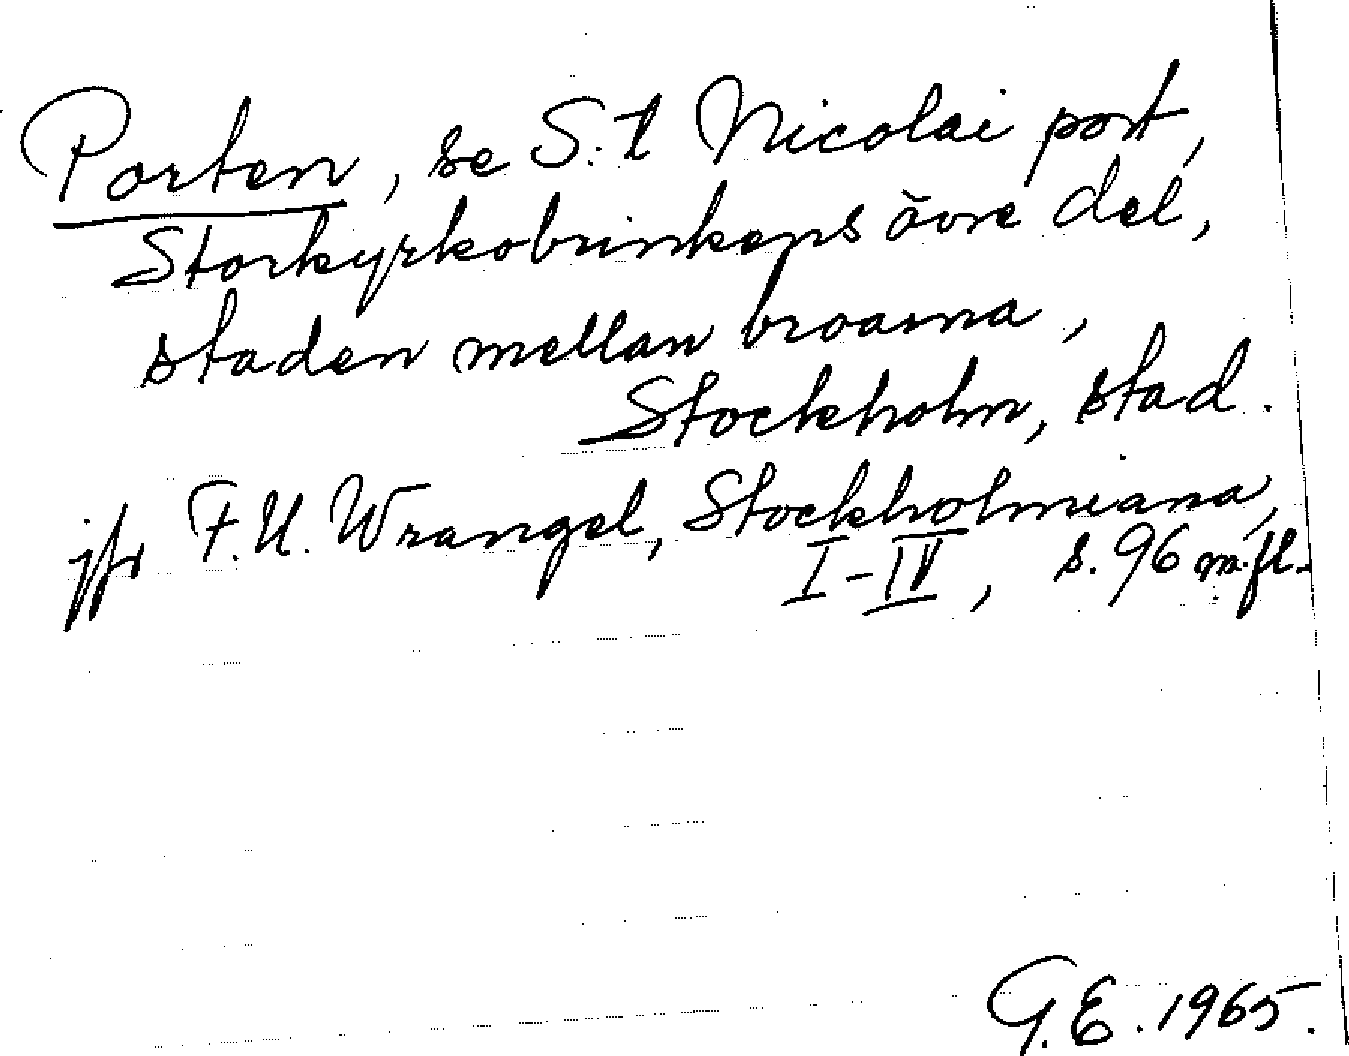 Porten, se S:t Nicolai port,
Storkyrkobrinkens övre del,
staden mellan broarna,
Stockholm, stad.
jfr F.U. Wrangel, Stockholmiana,
I-IV, s. 96 m.fl.
G.E. 1965.